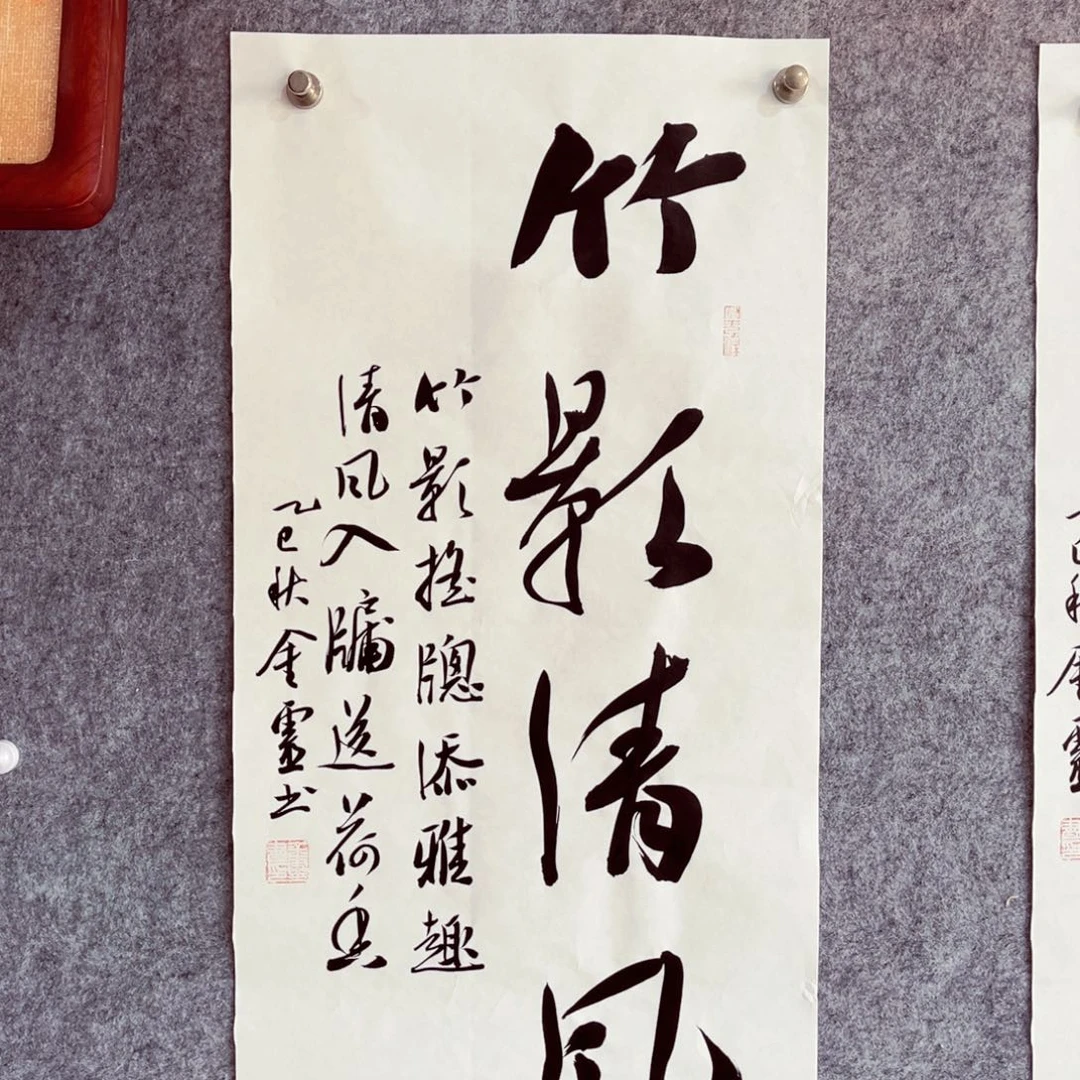 竹影清风
竹影摇牎添雅趣
清风入牖送荷香
乙巳秋金灵书